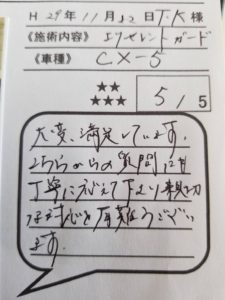 H 29年11月22日 T.K 様
《施術内容》 エクセレントガード
《車種》 CX-5
★★
★★★
5 / 5
大変、満足しています。
こちらからの質問にも
丁寧に応えて下さり親切
な対応を有難うござい
ます。